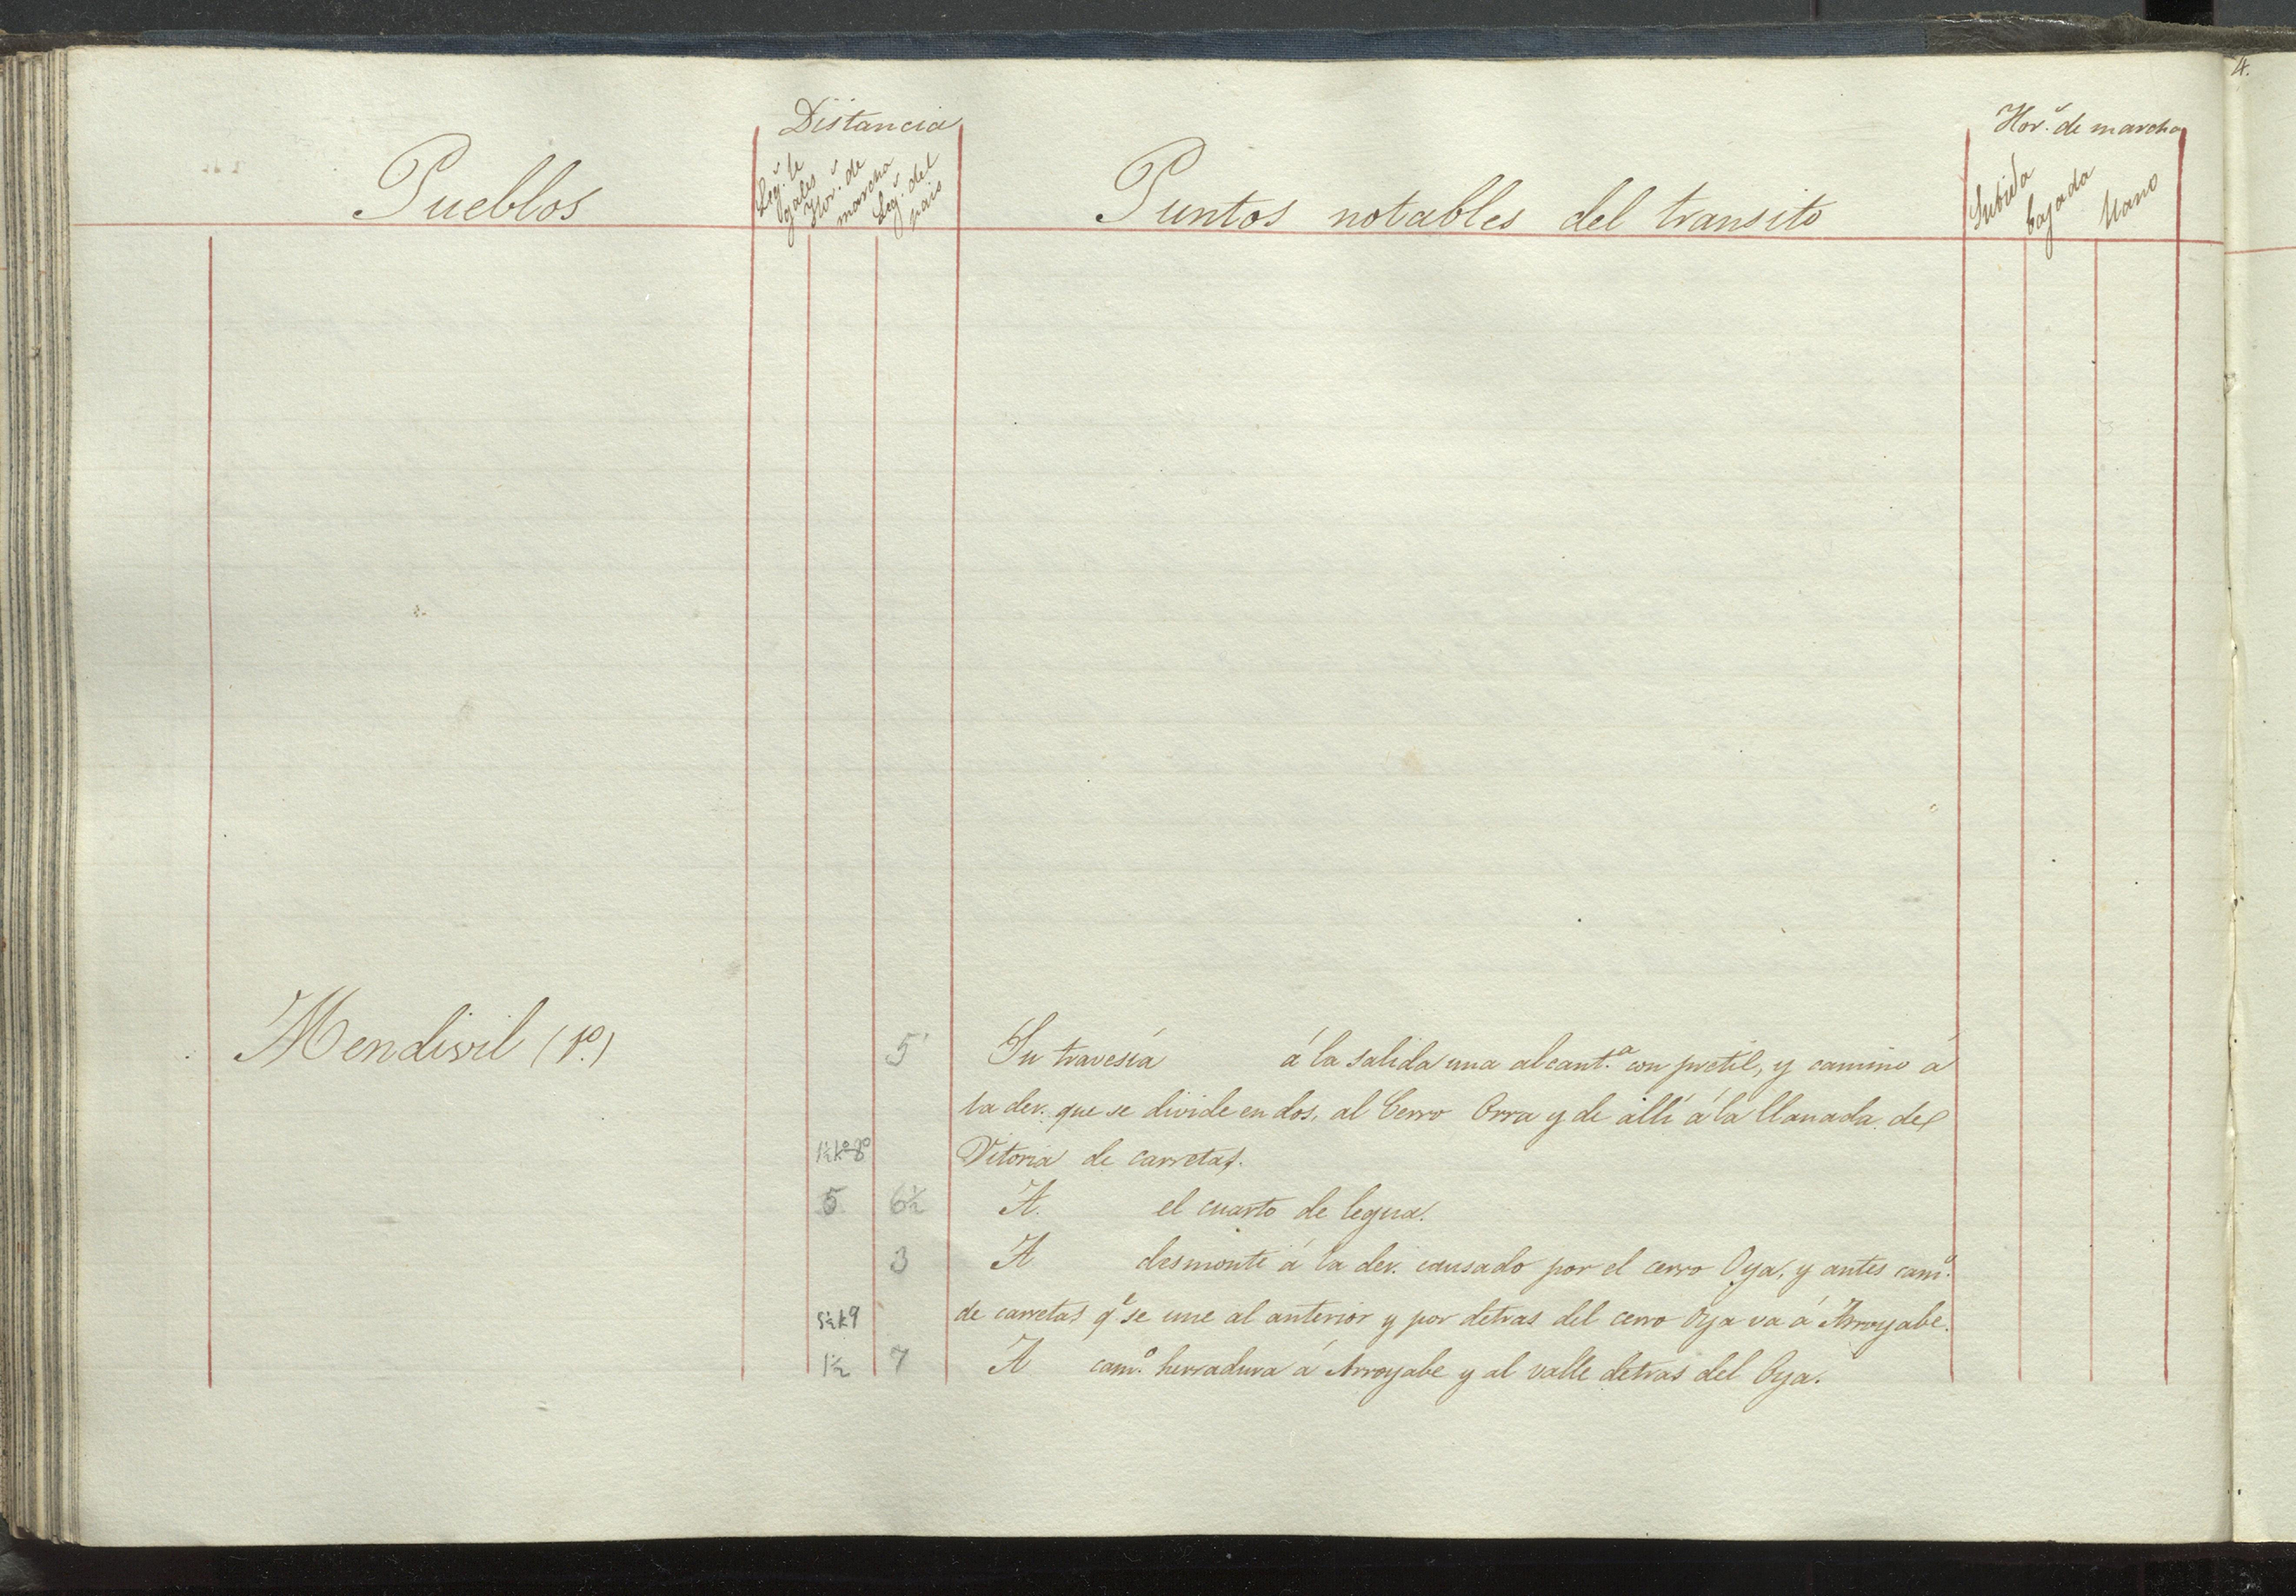 4.
Distancia
Hor.s de marcha
Pueblos
Leg.s le
gales
Hor.s de
marcha
Leg.s del
pais
Puntos notables del transito
Subida
bajada
llano
Mendivil (1º.)
5'
Su travesía á la salida una alcant.a con pretil, y camino á
la der. que se divide en dos, al Cerro Orra y de allí á la llanada de
Vitoria de carretas.
5 6½ A. el cuarto de legua.
3 A desmonte á la der. causado por el cerro Oya, y antes cam.o
de carretas q.e se une al anterior y por detras del cerro Oya va á Arroyabe.
1½ 7 A cam.o herradura á Arroyabe y al valle detras del Oya.